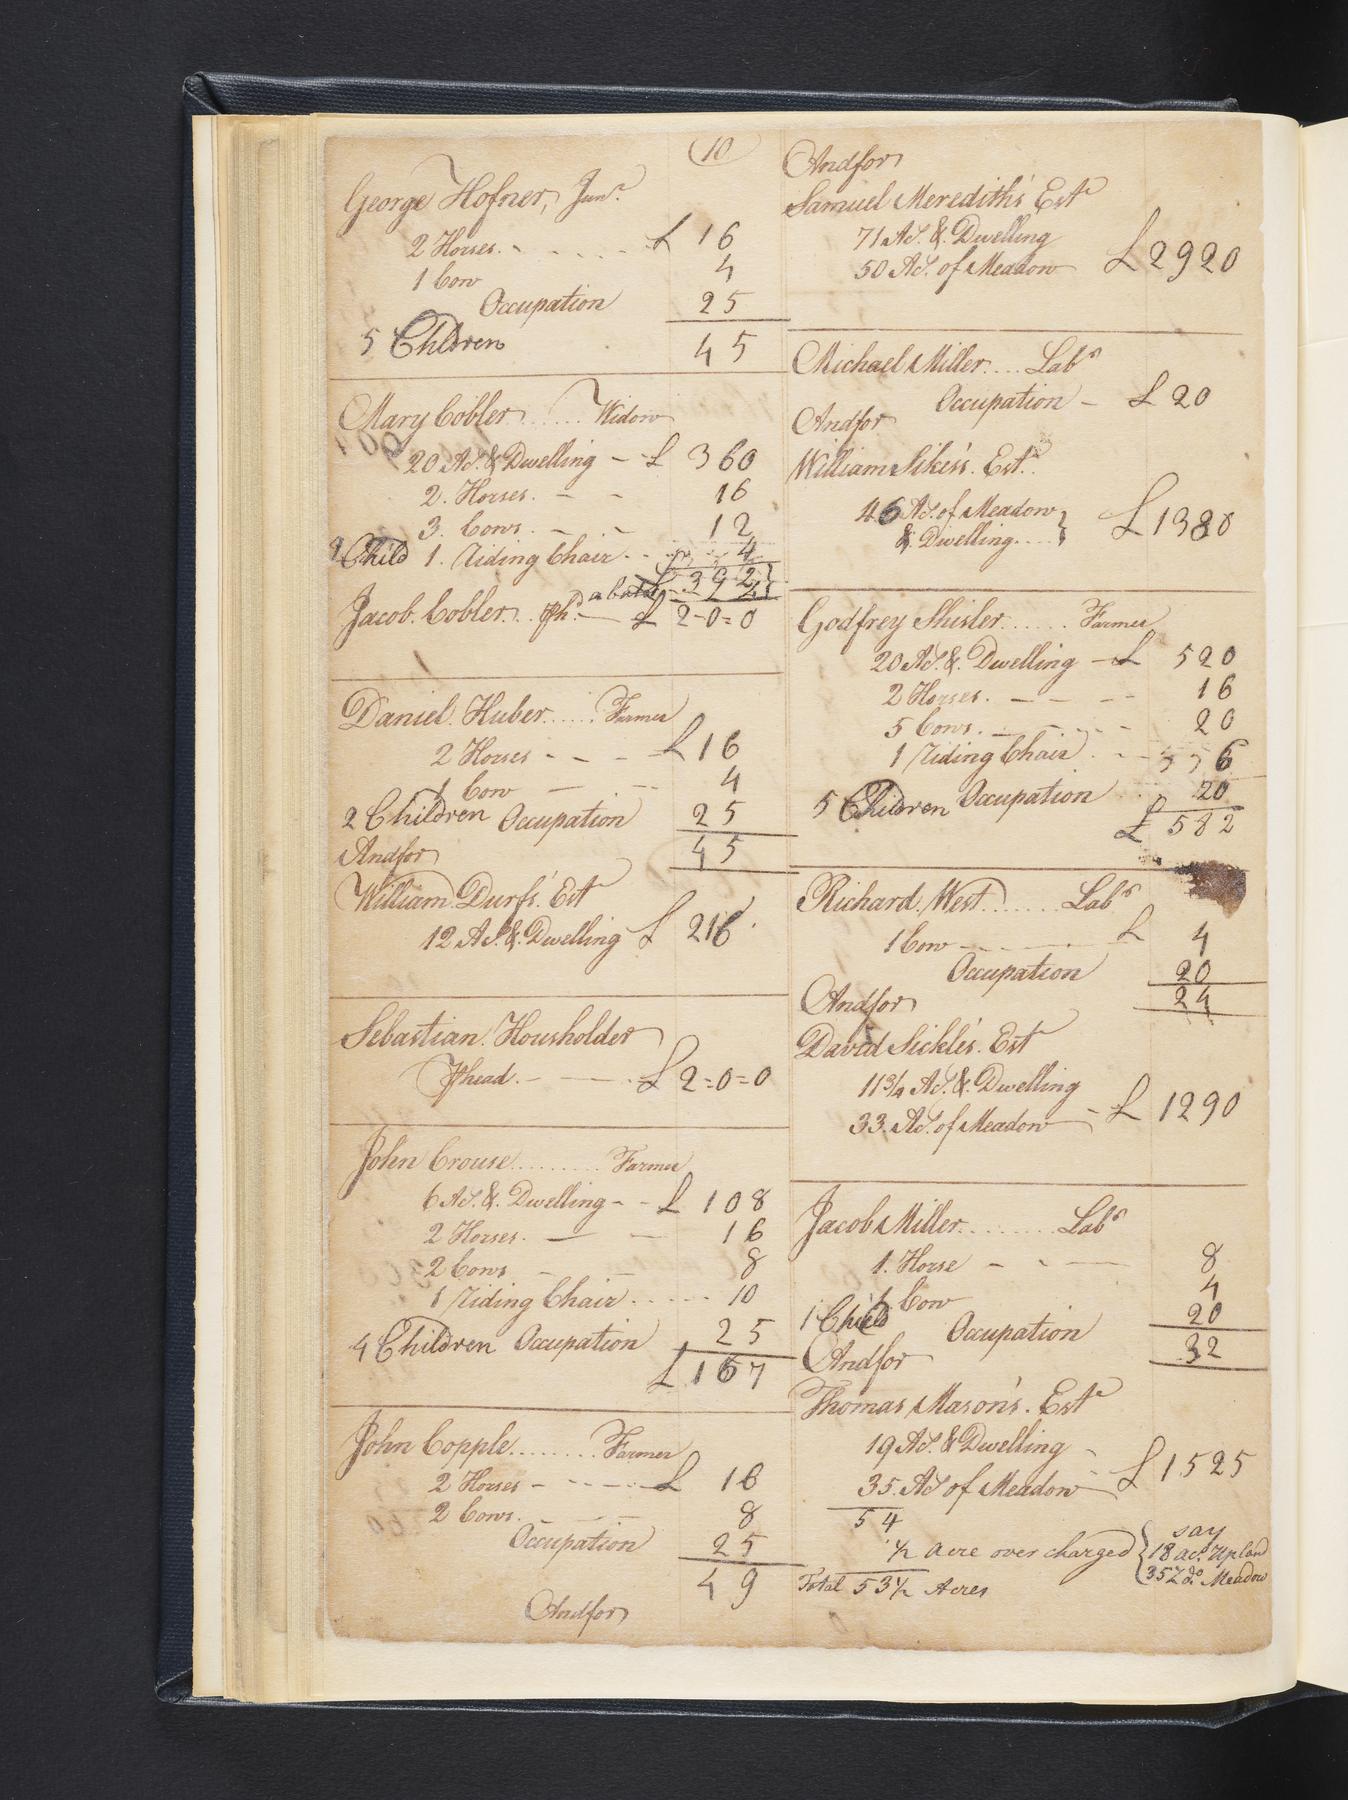 10
George Hofner, Junr.
2 Horses £ 16
1 Cow 4
Occupation 25
5 Children 45
Mary Cobler Widow
20 As. & Dwelling £ 360
2 Horses 16
3 Cows 12
Child 1 Riding Chair 4
£ 392
abate
Jacob Cobler £ 2=0=0
Daniel Huber Farmer
2 Horses £ 16
1 Cow 4
2 Children Occupation 25
45
And for
William Durfs' Est
12 As. & Dwelling £ 216
Sebastian Housholder
Pr head £ 2=0=0
John Crouse Farmer
6 As. & Dwelling £ 108
2 Horses 16
2 Cows 8
1 Riding Chair 10
4 Children Occupation 25
£ 167
John Copple Farmer
2 Horses £ 16
2 Cows 8
Occupation 25
49
And for
And for
Samuel Meredith's Este
71 As. & Dwelling
50 As. of Meadow £ 2920
Michael Miller Labr
Occupation £ 20
And for
William Sikes's Este
46 As. of Meadow
& Dwelling £ 1380
Godfrey Shisler Farmer
20 As. & Dwelling £ 520
2 Horses 16
5 Cows 20
1 Riding Chair 6
5 Children Occupation 20
£ 582
Richard West Labr
1 Cow £ 4
Occupation 20
24
And for
David Sickle's Est
11 3/4 As. & Dwelling
33 As. of Meadow £ 1290
Jacob Miller Labr
1 Horse 8
1 Cow 4
1 Child Occupation 20
32
And for
Thomas Mason's Este
19 As. & Dwelling
35 As. of Meadow £ 1525
54
1/2 acre over charged { say
18 acs. Upland
35 1/2 do. Meadow
Total 53 1/2 Acres